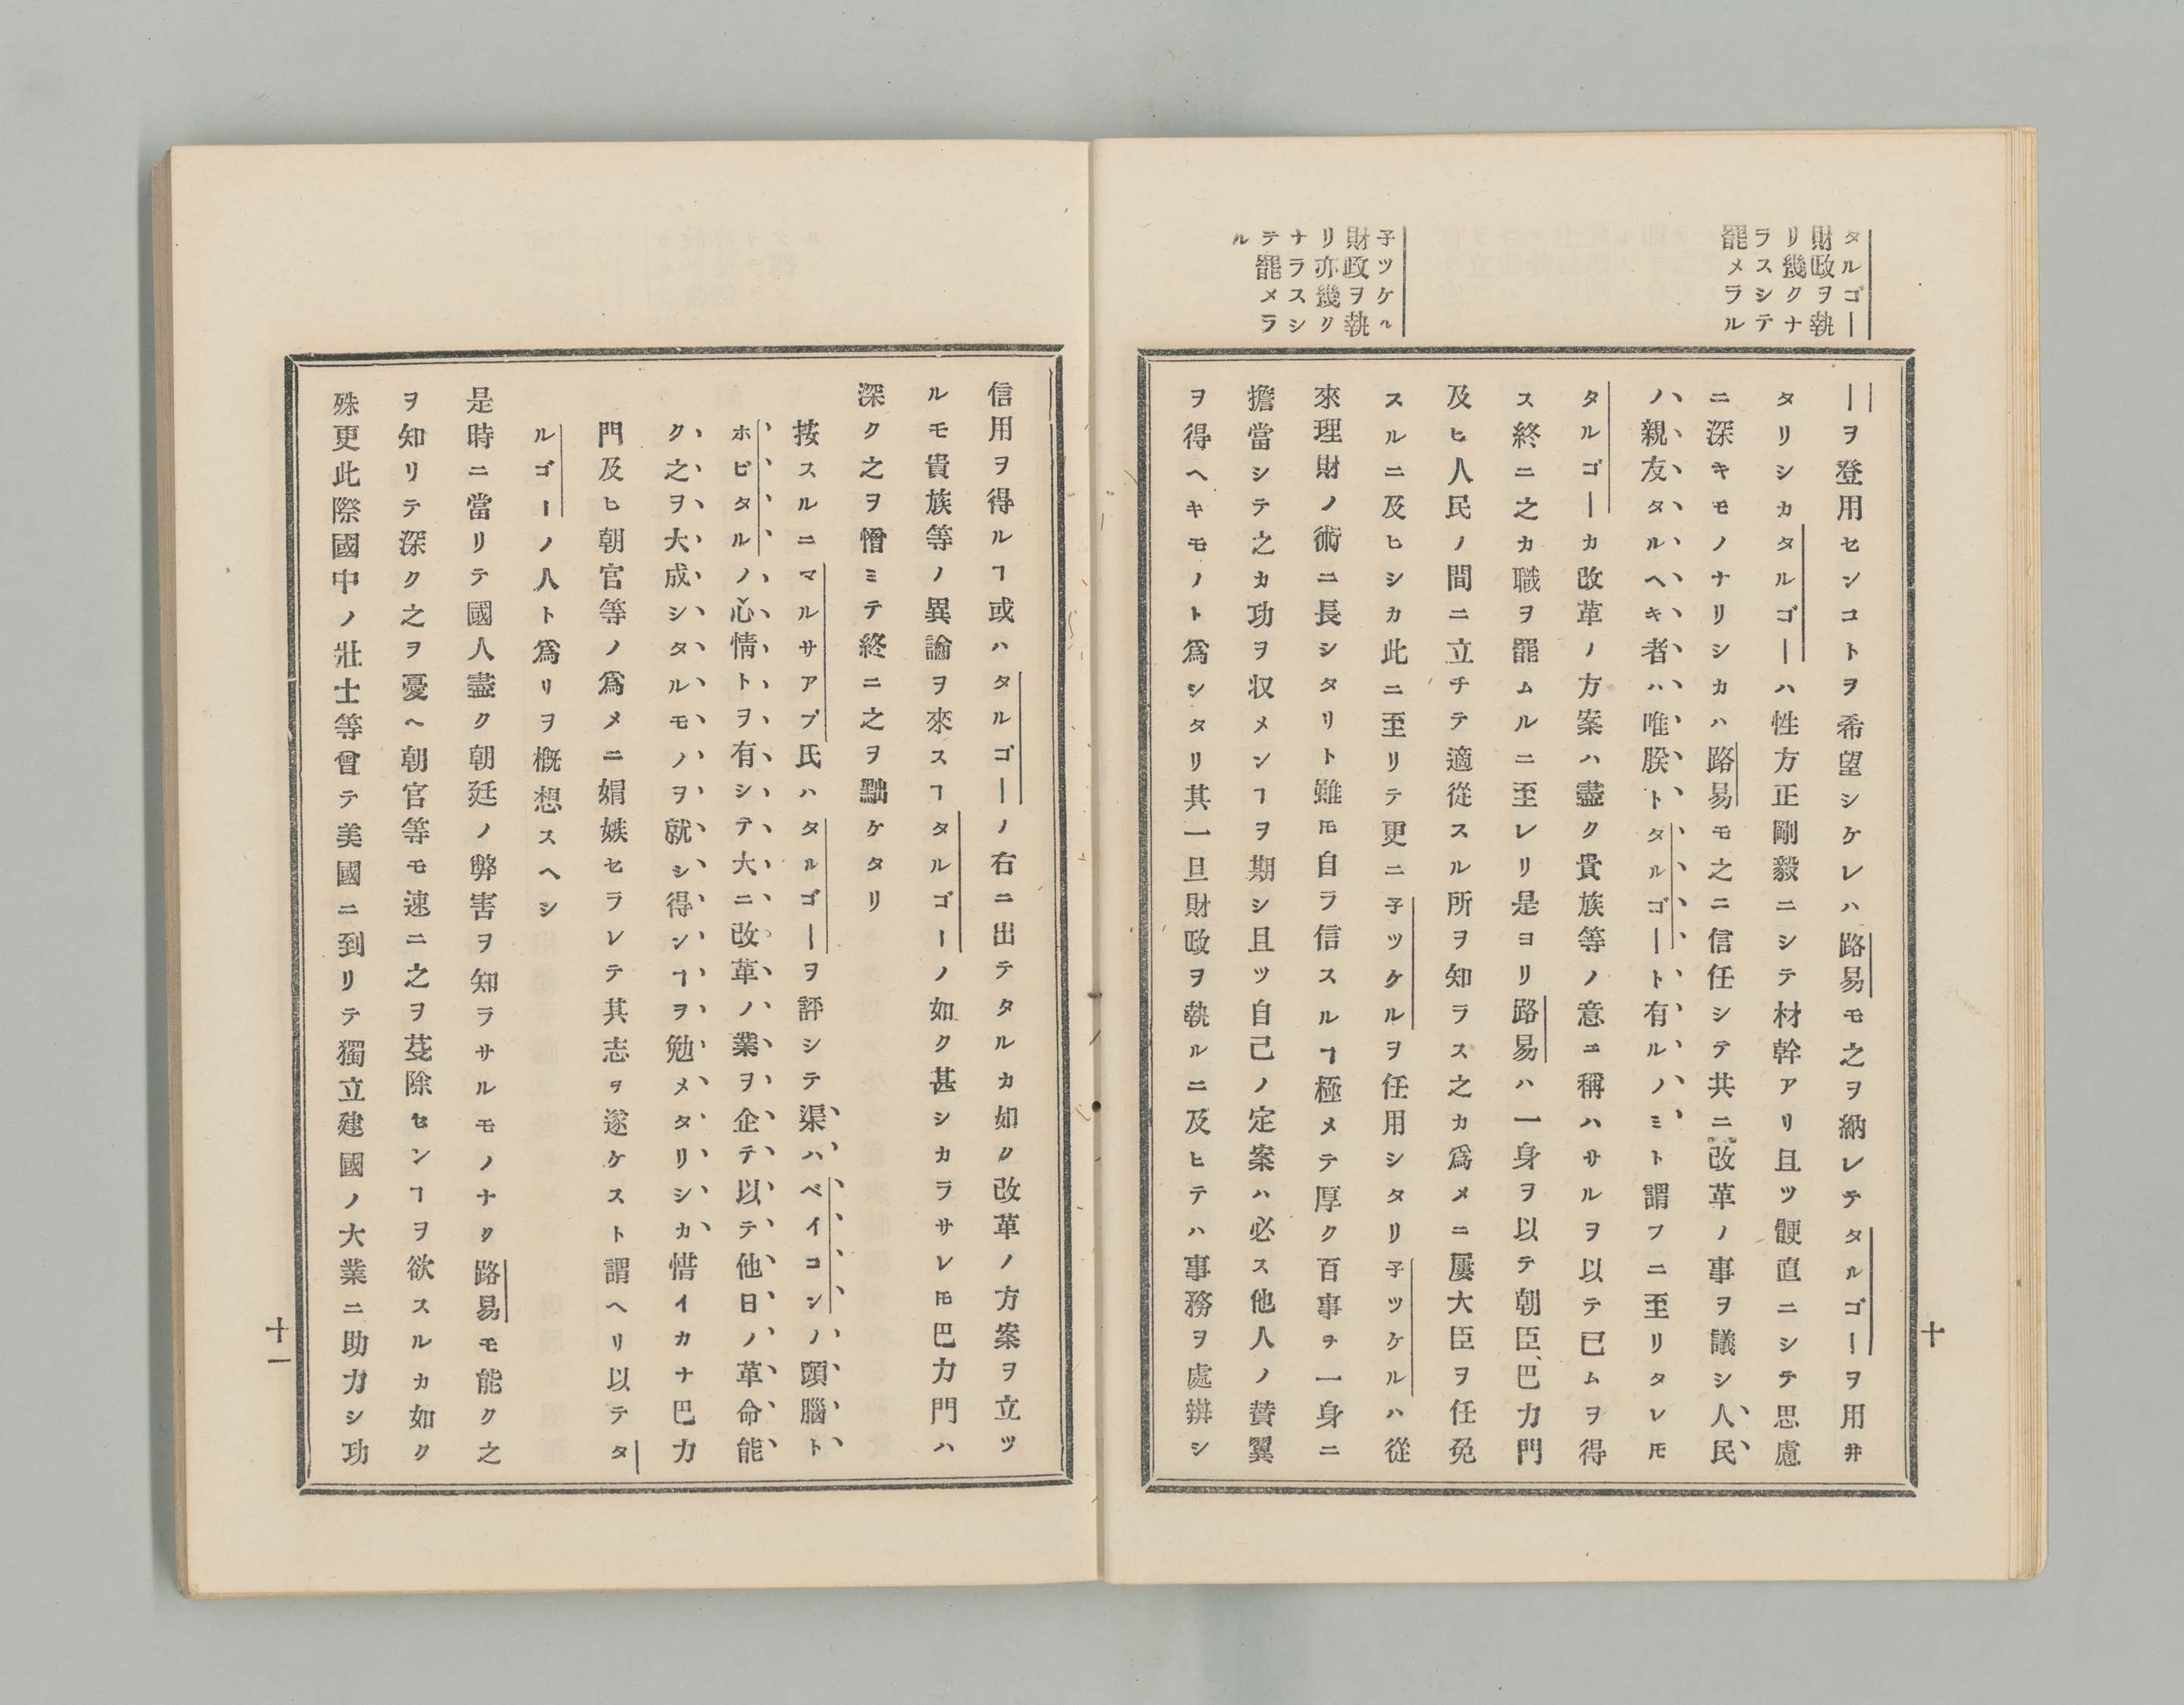 タルゴー
財政ヲ執
リ幾クナ
ラスシテ
罷メラル
子ツケル
財政ヲ執
リ亦幾ク
ナラスシ
テ罷メラ
ル
ーヲ登用センコトヲ希望シケレハ路易モ之ヲ納レテタルゴーヲ用井
タリシカタルゴーハ性方正剛毅ニシテ材幹アリ且ツ骾直ニシテ思慮
ニ深キモノナリシカハ路易モ之ニ信任シテ共ニ改革ノ事ヲ議シ人民
ノ親友タルヘキ者ハ唯朕トタルゴート有ルノミト謂フニ至リタレ𪜈
タルゴーカ改革ノ方案ハ盡ク貴族等ノ意ニ稱ハサルヲ以テ已ムヲ得
ス終ニ之カ職ヲ罷ムルニ至レリ是ヨリ路易ハ一身ヲ以テ朝臣、巴力門
及ヒ人民ノ間ニ立チテ適從スル所ヲ知ラス之カ爲メニ屢大臣ヲ任免
スルニ及ヒシカ此ニ至リテ更ニ子ツケルヲ任用シタリ子ツケルハ從
來理財ノ術ニ長シタリト雖𪜈自ラ信スルヿ極メテ厚ク百事ヲ一身ニ
擔當シテ之カ功ヲ収メンヿヲ期シ且ツ自己ノ定案ハ必ス他人ノ賛翼
ヲ得ヘキモノト爲シタリ其一旦財政ヲ執ルニ及ヒテハ事務ヲ處辨シ
十
信用ヲ得ルヿ或ハタルゴーノ右ニ出テタルカ如ク改革ノ方案ヲ立ツ
ルモ貴族等ノ異論ヲ來スヿタルゴーノ如ク甚シカラサレ𪜈巴力門ハ
深ク之ヲ憎ミテ終ニ之ヲ黜ケタリ
按スルニマルサアブ氏ハタルゴーヲ評シテ渠ハベイコンノ頭腦ト
ホピタルノ心情トヲ有シテ大ニ改革ノ業ヲ企テ以テ他日ノ革命能
ク之ヲ大成シタルモノヲ就シ得ンヿヲ勉メタリシカ惜イカナ巴力
門及ヒ朝官等ノ爲メニ娟嫉セラレテ其志ヲ遂ケスト謂ヘリ以テタ
ルゴーノ人ト爲リヲ概想スヘシ
是時ニ當リテ國人盡ク朝廷ノ弊害ヲ知ラサルモノナク路易モ能ク之
ヲ知リテ深ク之ヲ憂ヘ朝官等モ速ニ之ヲ芟除センヿヲ欲スルカ如ク
殊更此際國中ノ壯士等曾テ美國ニ到リテ獨立建國ノ大業ニ助力シ功
十一